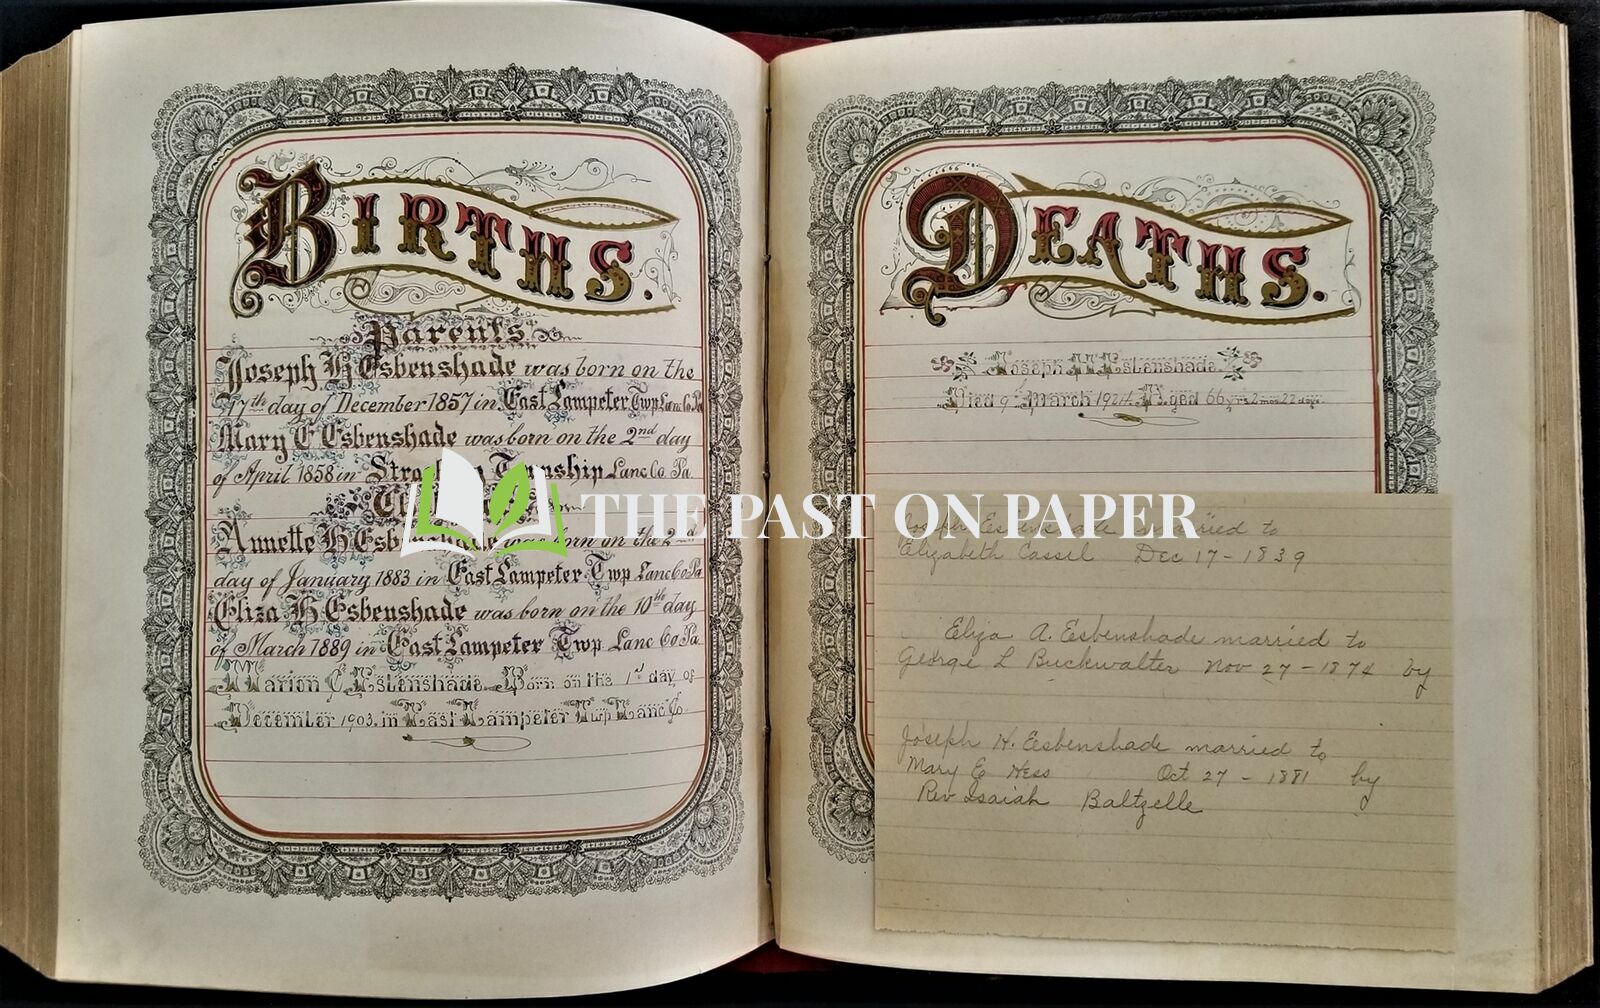 BIRTHS.
Parents
Joseph H Esbenshade was born on the
17th day of December 1857 in East Lampeter Twp Lanc Co Pa
Mary E Esbenshade was born on the 2nd day
of April 1858 in Township Lanc Co Pa
Annette H Esbenshade was born on the 2nd
day of January 1883 in East Lampeter Twp Lanc Co Pa
Eliza H Esbenshade was born on the 10th day
of March 1889 in East Lampeter Twp Lanc Co Pa
Marion E Esbenshade Born on the 1st day of
December 1903. in East Lampeter Twp Lanc Co.
DEATHS.
Joseph H Esbenshade
Died 9 March 1924 Aged 66 yrs 2 mos 22 days
THE PAST ON PAPER
Joseph Esbenshade married to
Elizabeth Cassel Dec 17 - 1839
Eliza A. Esbenshade married to
George L Buckwalter Nov 27 - 1874 by
Joseph H. Esbenshade married to
Mary E Hess Oct 27 - 1881 by
Rev Isaiah Baltzelle